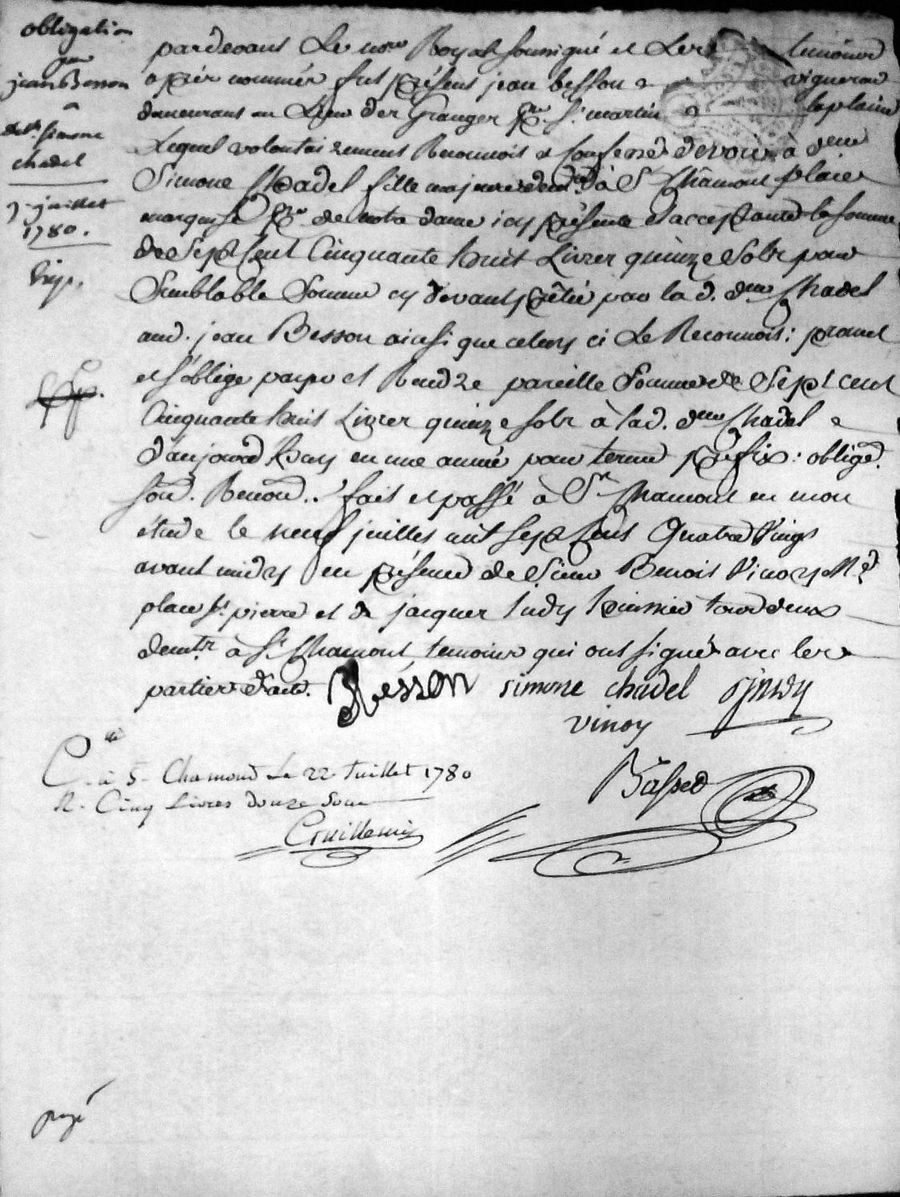 obligation
par
jean Besson
a
dlle. Simone
chadel
9 juillet
1780.
Exp.
pardevant Le nore Royal soussigné et Les temoins
apres nommés fut présent jean besson vigneron
demeurant au Lieu des Granges psse St martin la plaine
Lequel volontairement Reconnoit et confesse devoir à dlle
Simone Chadel fille majeure demte à St Chamont place
marquise psse de notre dame icy présente et acceptante la somme
de Sept Cent Cinquante huit Livres quinze sols pour
Semblable Somme cy devant prêtée par la d. dlle Chadel
aud. jean Besson ainsi que celuy ci Le Reconnoit: promet
et s'oblige payer et Rendre pareille Somme de Sept cent
Cinquante huit Livres quinze sols à lad. dlle Chadel
d'aujourd'huy en une année pour terme préfix: obligeant.
soud. Renond. fait et passé à St Chamont en mon
étude le neuf juillet mil sept cent Quatre Vingt
avant midy en présence de Sieur Benoit Vinoy Md
place St. pierre et de jacques judy huissier tous deux
demts à St. Chamont temoins qui ont signé avec les
parties
Bésson simone chadel
vinoy
Cllé à S. Chamond Le 22 Juillet 1780
R. Cinq Livres douze Sous
payé